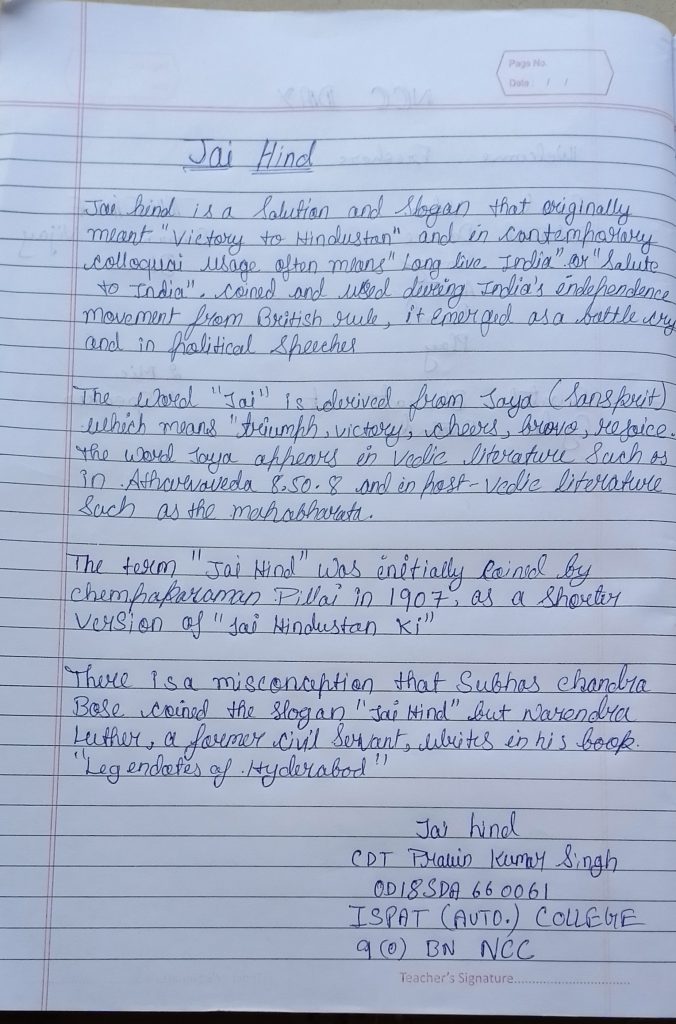 Page No.
Date / /
Jai Hind
Jai hind is a Salution and Slogan that originally
meant "Victory to Hindustan" and in contemporary
colloquai usage often means "Long live India" or "Salute
to India". coined and used during India's independence
movement from British rule, it emerged as a battle cry
and in political Speeches
The word "Jai" is derived from Jaya (Sanskrit)
which means "triumph, victory, cheers, bravo, rejoice.
The word Jaya appears in vedic literature Such as
in Atharvaveda 8.50.8 and in post-Vedic literature
Such as the mahabharata.
The term "Jai Hind" was initially coined by
chempakaraman Pillai in 1907, as a Shorter
Version of "Jai Hindustan Ki"
There is a misconception that Subhas chandra
Bose coined the slogan "Jai Hind" but Narendra
Luther, a former civil Servant, writes in his book.
"Legendotes of Hyderabad"
Jai hind
CDT Pravin Kumar Singh
OD18SDA 660061
ISPAT (AUTO.) COLLEGE
9(O) BN NCC
Teacher's Signature